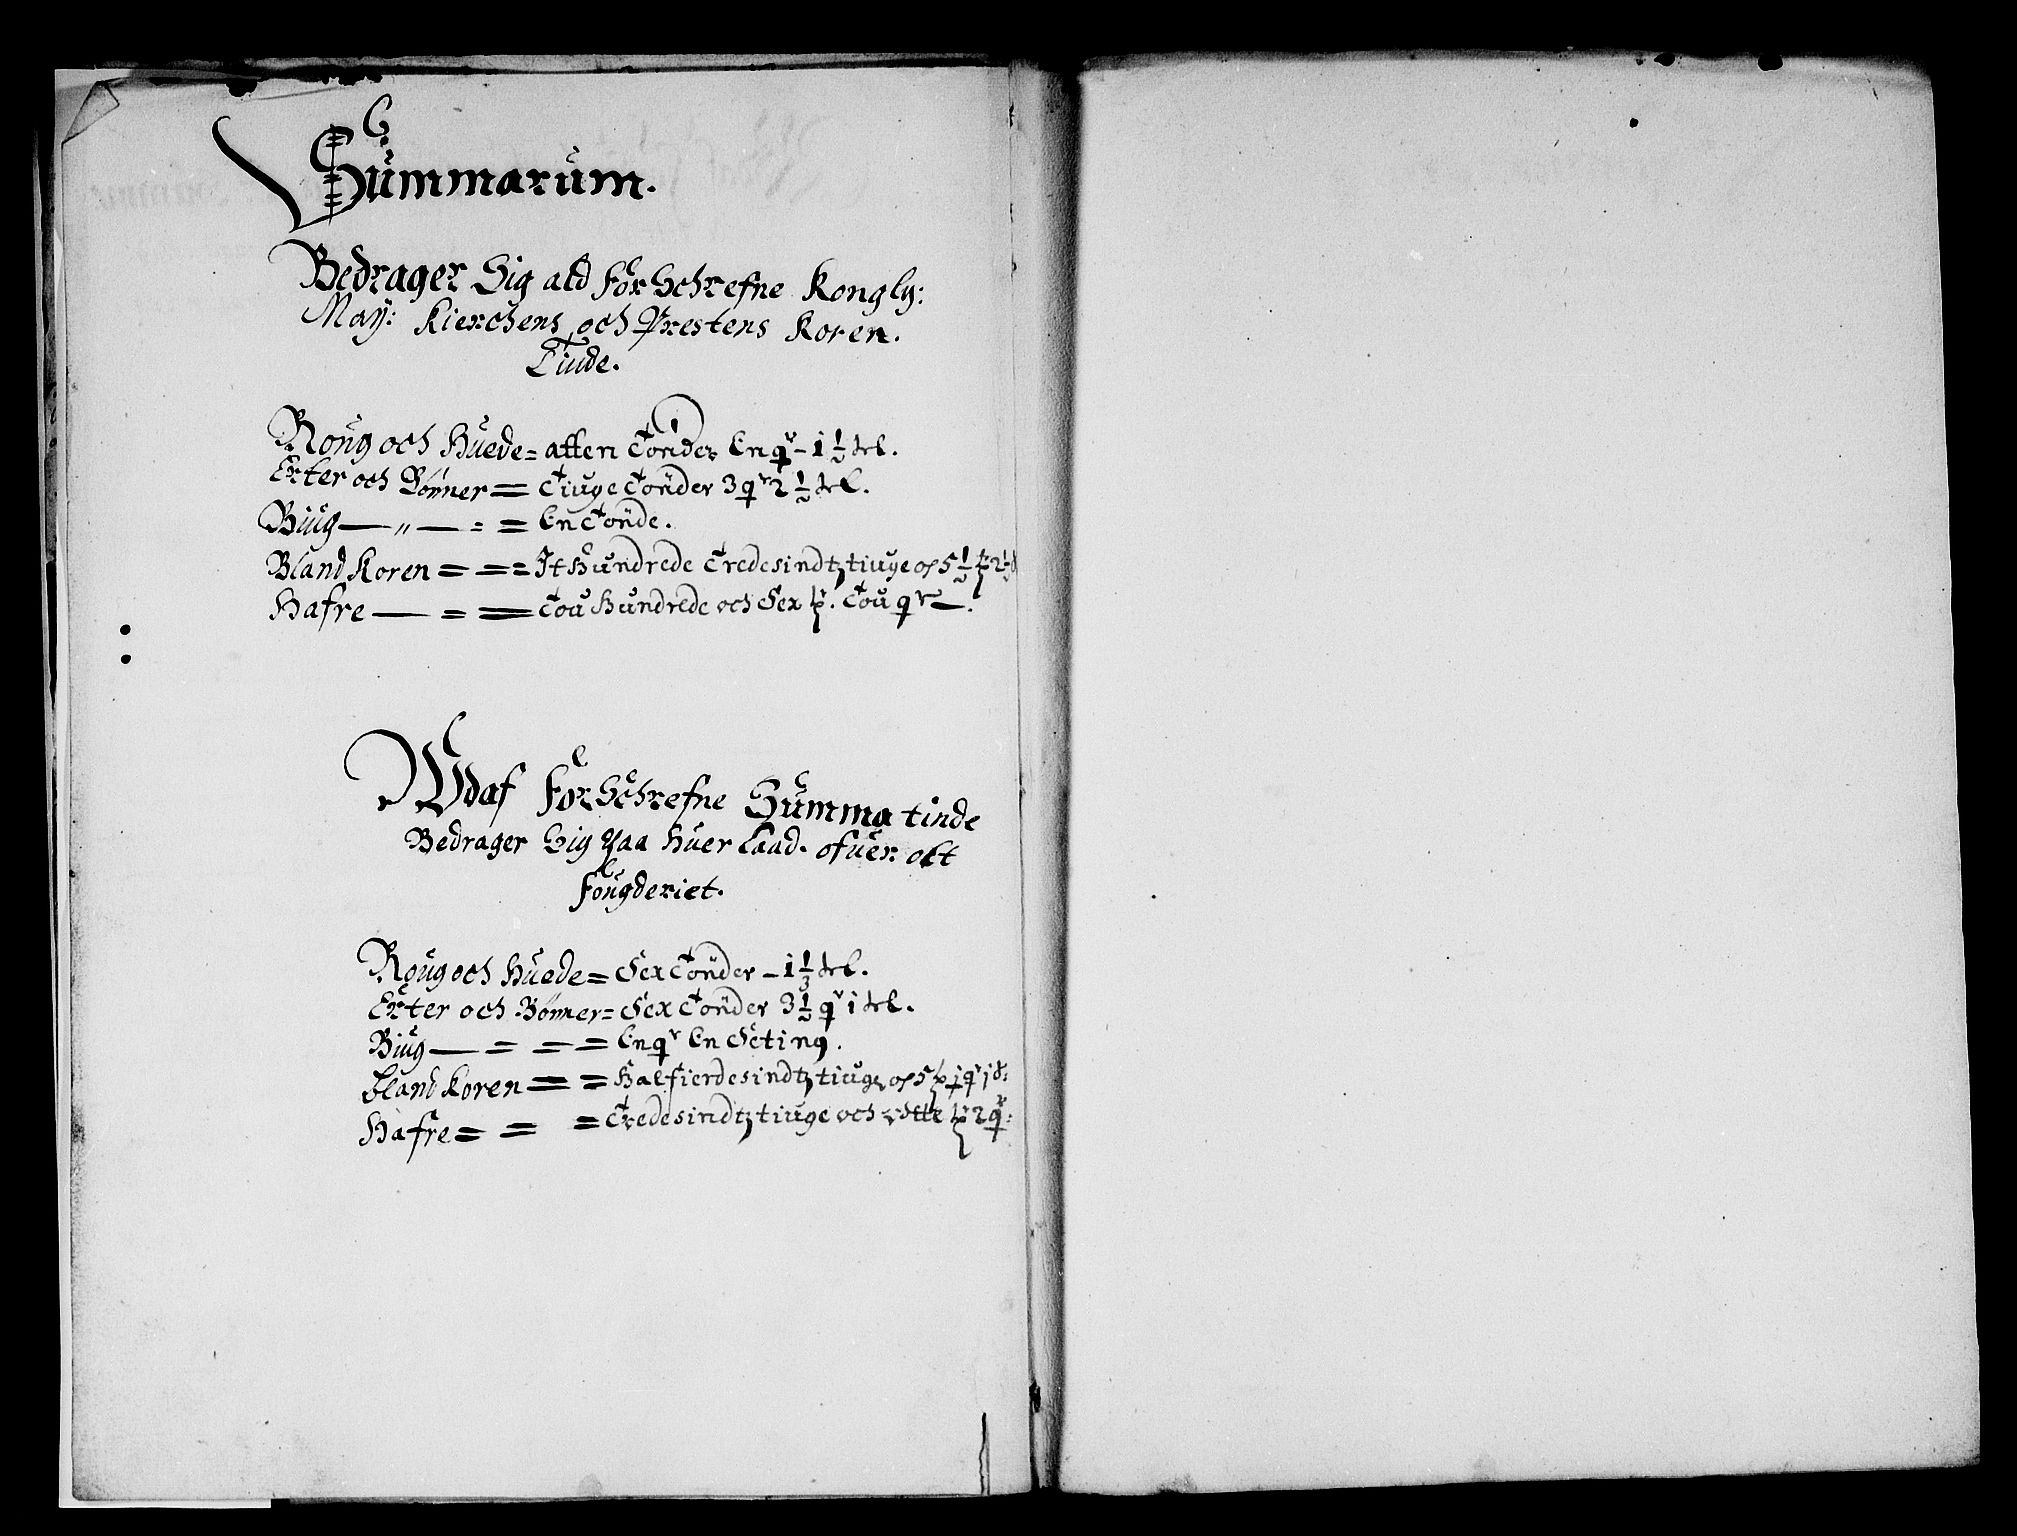 Summarum.
Bedrager Sig ald for Schrefne Kongly:
May: Kierchens och Prestens Koren.
Tiude.
Roug och Huede = atten Tönder En qr – 1 1/2 tel.
Erter och Bönner = Tiuge Tönder 3 qr 2 1/2 tel.
Biug — " — = = En Tönde.
Bland Koren = = = It Hundrede Tredesindtztiuge og 5 1/2 tr 2 1/2
Hafre — = = Tou Hundrede och Sex tr. Tou qr —.
Udaf For Schrefne Summa tinde
Bedrager Sig paa Huer Laad. ofuer alt
fougderiet.
Roug och Huede = Sex Tönder – 1 1/3 tel.
Erter och Bönner = Sex Tönder 3 1/2 qr 1 tel.
Biug — = = = En qr En Seting.
Bland Koren = = Halfierdesindtztiuge og 5 tr 1 qr 1
Hafre = = = Tredesindtztiuge och otte tr 2 qr: